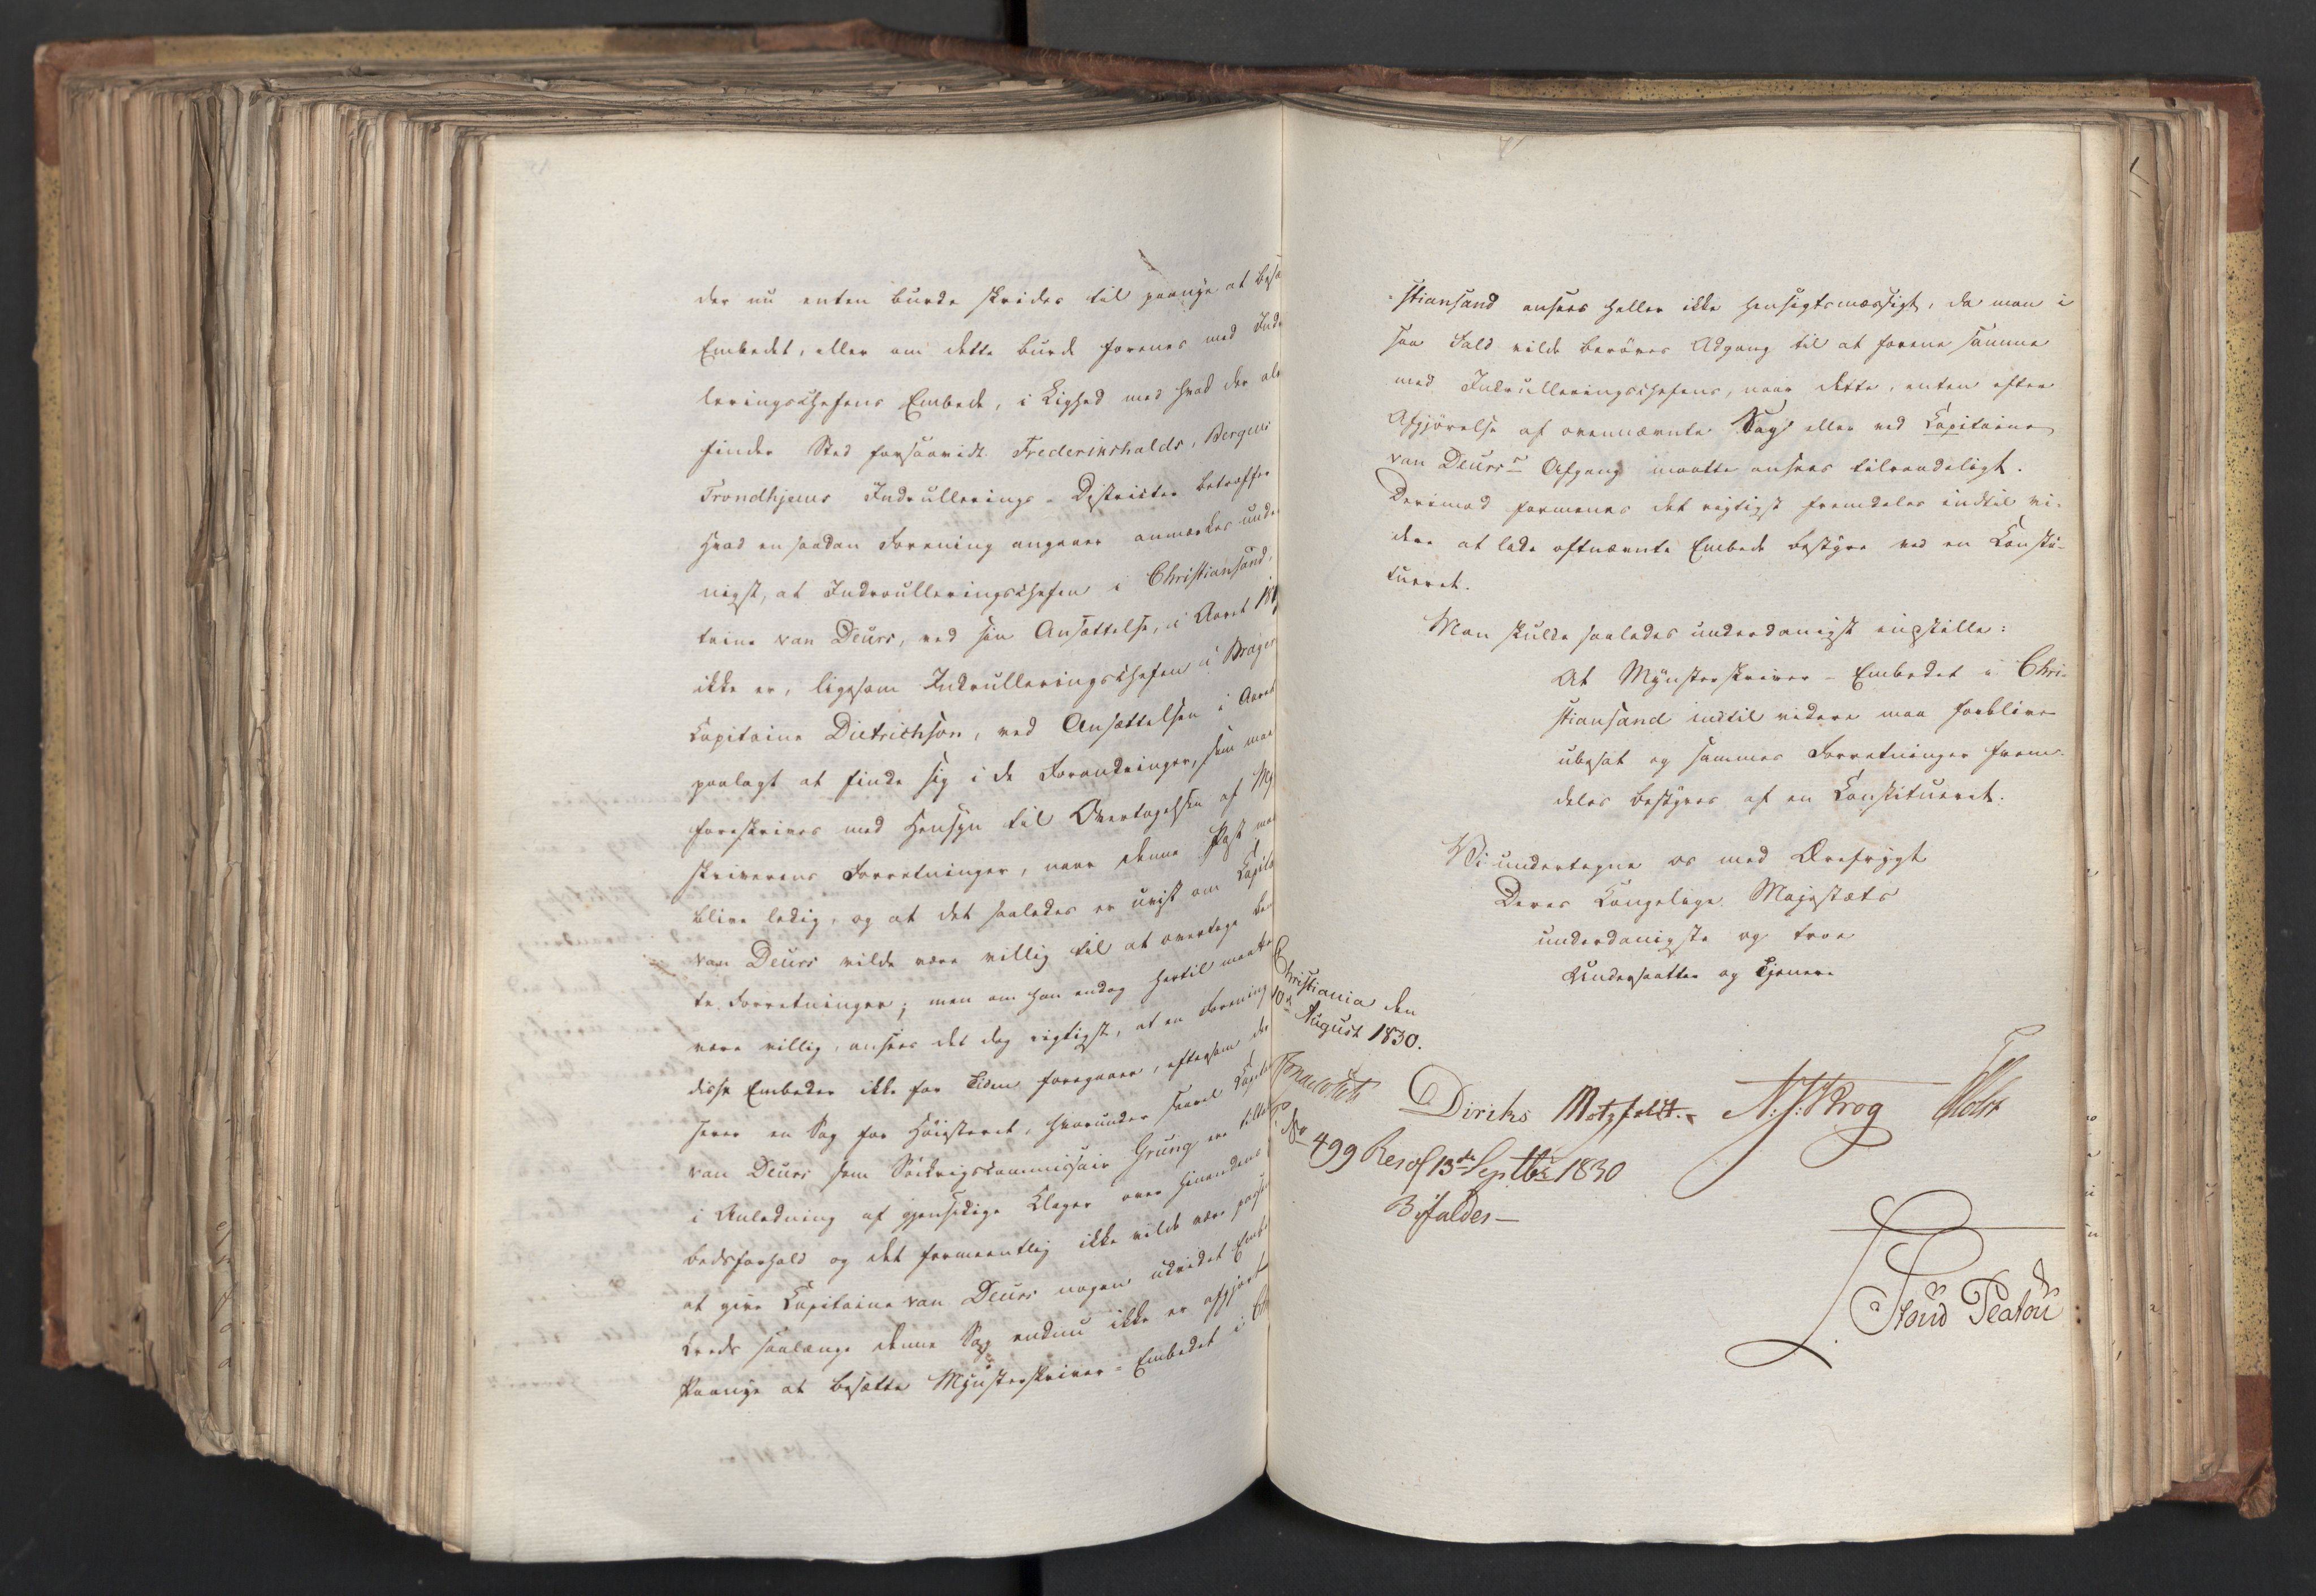 der nu enten burde skrides til paanye at besæ
Embedet, eller om dette burde forenes med Indr
leringschefens Embede, i Lighed med hvad der al
finder Sted forsaavidt Frederikshalds, Bergens
Trondhjems Indrullerings-Districter betræffer
Hvad en saadan Forening angaaer anmærkes unde
nigst, at Indroulleringschefen i Christiansand,
taine van Deurs, ved sin Ansættelse, i Aaret 18
ikke er, ligesom Indroulleringschefen i Brager
Capitaine Dietrichson, ved Ansættelsen i Aaret
paalagt at finde sig i de Forandringer, som maa
foreskrives med Hensyn til Overtagelsen af My
skriverens Forretninger, naar denne Post ma
blive ledig, og at det saaledes er uvist om Capit
van Deurs vilde være villig til at overtage be
te Forretninger; men om han endog hertil maatte
være villig, ansees det dog rigtigst, at en Forening
disse Embeder ikke for Tiden foregaaer, eftersom de
sever en Sag for Høiesteret, hvorunder saavel Capit
van Deurs som Söekrigscommissair Grung ere tilta
i Anledning af gjensidige Klager over hinandens
bedsforhold og det formeentlig ikke vilde være pas
at give Capitaine van Deurs nogen udvidet Emb
kreds saalænge denne Sag endnu ikke er afgjort
Paanye at besætte Mynsterskriver-Embedet i Ch
stiansand ansees heller ikke hensigtsmæssigt, da man i
saa Fald vilde berøves Adgang til at forene samme
med Indroulleringschefens, naar dette, enten efter
Afgjørelse af ovennævnte Sag eller ved Capitaine
van Deurs's Afgang maatte ansees tilraadeligt.
Derimod formenes det rigtigst fremdeles indtil vi-
dere at lade oftnævnte Embede bestyre ved en Consti-
tueret.
Man skulde saaledes underdanigst indstille:
At Mynsterskriver-Embedet i Chri-
stiansand indtil videre maa forblive
ubesat og sammes Forretninger frem-
deles bestyres af en Constitueret.
Vi undertegne os med Ærefrygt
Deres Kongelige Majestæts
underdanigste og troe
Undersaatter og Tjenere
Christiania den
10de August 1830.
Diriks Motzfeldt. N: J: Krog Holst
No 499 Resol 13de Septbr 1830
Bifaldes—
Stoud Platou